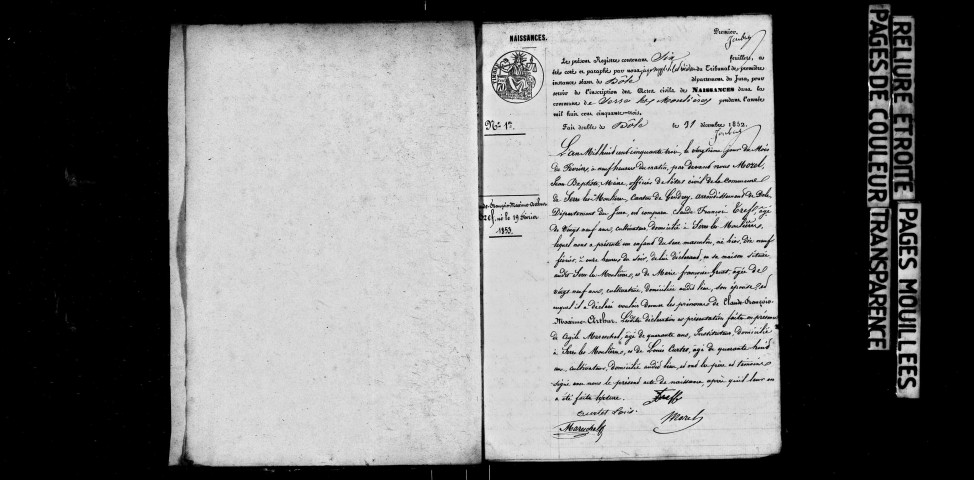 NAISSANCES.
Premier.
Joubert
Le présent Registre contenant Six feuillets, a
été coté et paraphé par nous, du Tribunal de première
instance séant de Dôle département du Jura, pour
servir de l'inscription des Actes civils de NAISSANCES dans la
commune de Serre les Moulières pendant l'année
mil huit cent cinquante-trois.
Fait double à Dôle le 31 décembre 1852.
Joubert
N° 1er
L'an Mil huit cent cinquante trois, le vingtième jour du Mois
de Février, à neuf heures du matin, par devant nous Morel,
Jean Baptiste, Maire, officier de l'état civil de la Commune
de Serre les Moulières, Canton de Gendrey, arrondissement de Dole,
Département du Jura, est comparu Claude François Treff, âgé
de vingt neuf ans, cultivateur, domicilié à Serre les Moulières,
lequel nous a présenté un enfant du sexe masculin, né hier, dix neuf
février, à onze heures du soir, de lui déclarant, en sa maison située
audit Serre les Moulières, et de Marie françoise âgée de
vingt neuf ans, cultivatrice, domiciliée audit lieu, son épouse, et
auquel il a déclaré vouloir donner les prénoms de Claude-François-
Maxime-Arthur. Ladite déclaration et présentation faite en présence
de Agile Mareschel, âgé de quarante ans, Instituteur, domicilié
à Serre les Moulières, et de Louis Curtet, âgé de quarante huit
ans, cultivateur, domicilié audit lieu, et ont les père et témoins
signé avec nous le présent acte de naissance, après qu'il leur en
a été faite lecture. Treff
curtet Louis. Morel
Mareschel
François-Maxime-Arthur
né le 19 Février
1853.
RELIURE ÉTROITE
PAGES DE COULEUR
PAGES MOUILLÉES
TRANSPARENCE